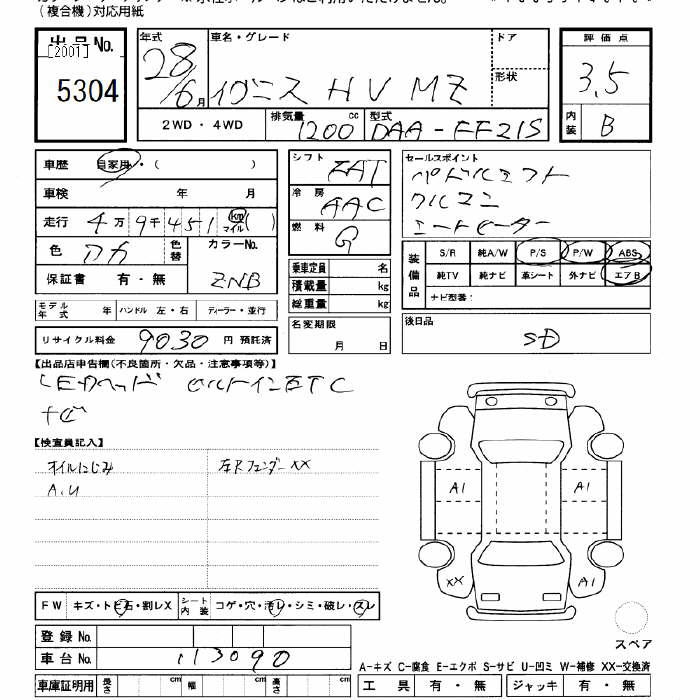 （複合機）対応用紙
出品No.
[2001]
5304
年式
28/6月
車名・グレード
イグニス HV MZ
ドア
形状
2WD・4WD
排気量 1200 cc
型式 DAA-FF21S
評価点
3.5
内装 B
車歴 自家用・( )
車検 年 月
走行 4万9千451 km マイル ( )
色 アカ 色替
カラーNo. ZNB
保証書 有・無
モデル年式 年 ハンドル 左・右 ディーラー・並行
リサイクル料金 9030 円 預託済
シフト FAT
冷房 AAC
燃料 G
乗車定員 名
積載量 kg
総重量 kg
名変期限
月 日
セールスポイント
パドルシフト
クルコン
シートヒーター
装備品
S/R 純A/W P/S P/W ABS
純TV 純ナビ 革シート 外ナビ エアB
ナビ型番:
後日品
SD
【出品店申告欄(不良箇所・欠品・注意事項等)】
LEDヘッド ビルトインETC
ナビ
【検査員記入】
オイルにじみ
A.U
左Rフェンダー XX
A1
A1
XX
A1
スペア
FW キズ・トビ石・割レX
シート内装 コゲ・穴・汚レ・シミ・破レ・スレ
登録No.
車台No. 113090
車庫証明用 長さ cm 幅 cm 高さ cm
A-キズ C-腐食 E-エクボ S-サビ U-凹ミ W-補修 XX-交換済
工具 有・無 ジャッキ 有・無